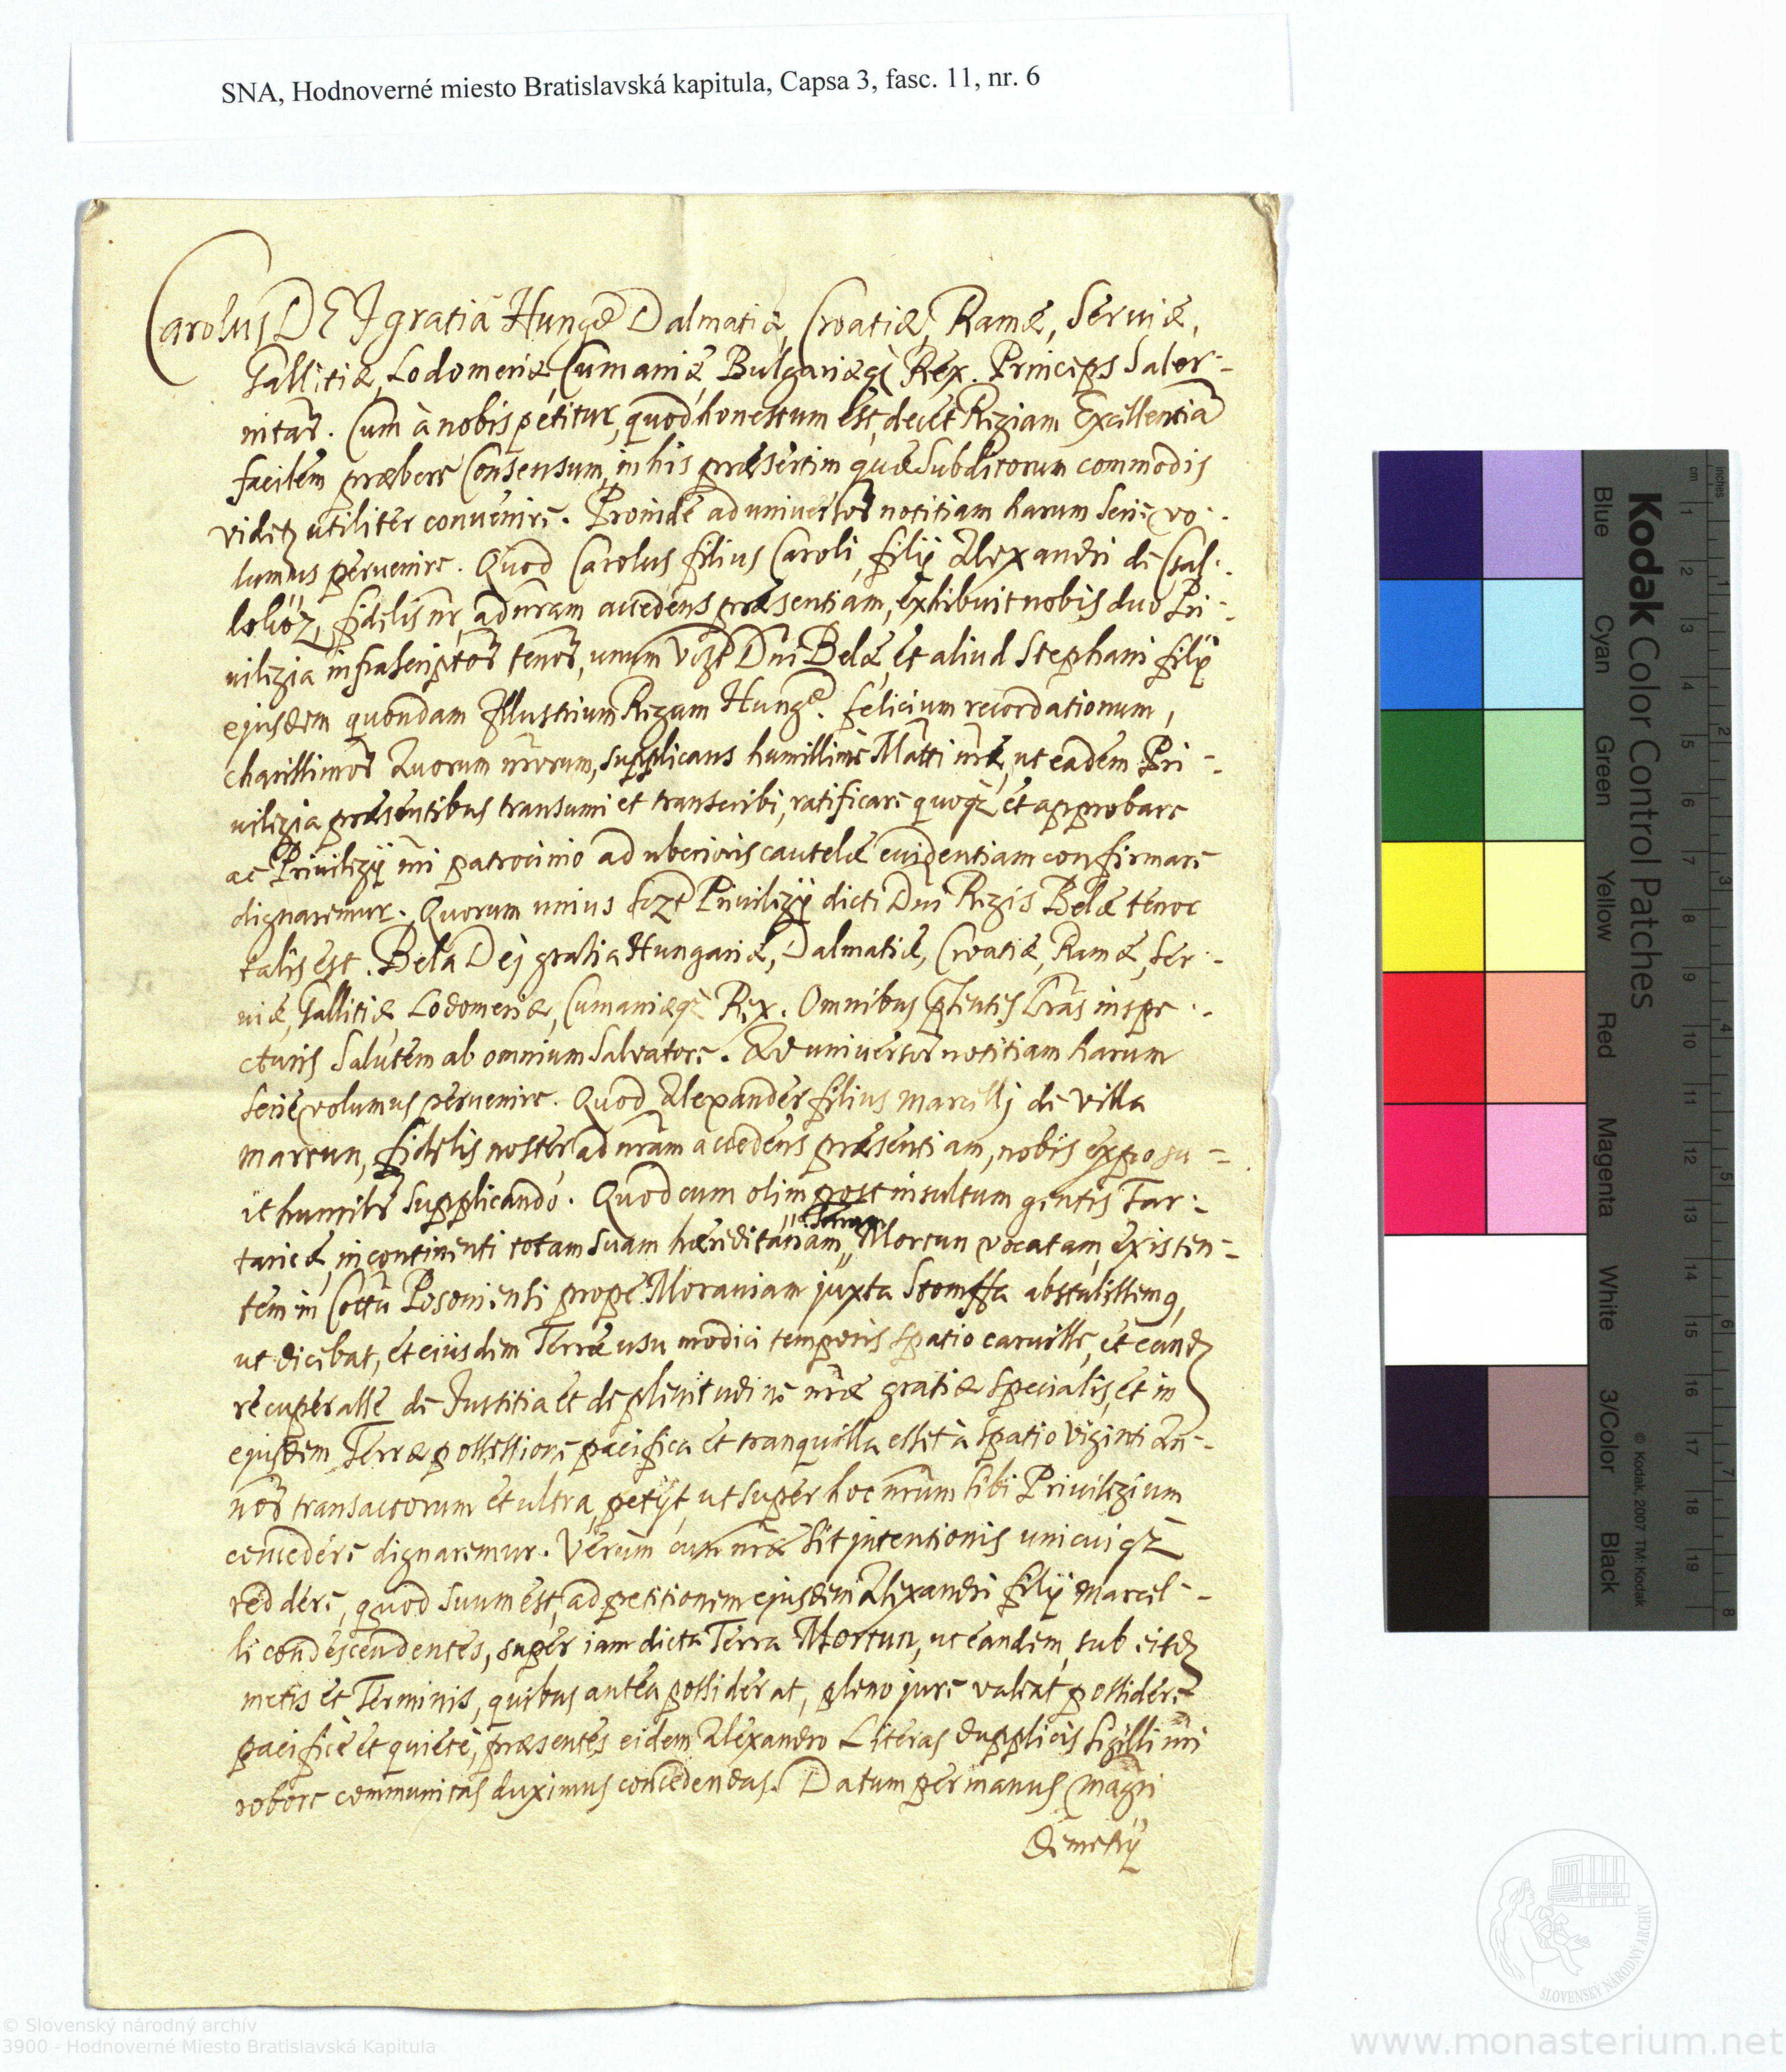 SNA, Hodnoverné miesto Bratislavská kapitula, Capsa 3, fasc. 11, nr. 6
Carolus DEI gratia Hungæ Dalmatiæ, Croatiæ, Ramæ, Seruiæ,
Gallitiæ, Lodomeriæ, Cumaniæ, Bulgariæq; Rex. Princeps Saler-
nitan9. Cum à nobis petitur, quod honestum est, decet Regiam Excellentiã
facilem præbere Consensum, in his præsertim quæ Subditorum commodis
videt utiliter convenire. Proinde ad universor notitiam harum Serie vo-
lumus pervenire. Quod Carolus filius Caroli, filij Alexandri de Csal-
lokóz, fidelis nr, ad nram accedens præsentiam, exhibuit nobis duo Pri-
uilegia infrascriptor tenor, unum Vizt Dni Belæ, et aliud Stephani filij
ejusdem quondam Illustrium Regum Hungæ. felicium recordationum,
charissimor Auorum nrorum, supplicans humillime Matti nræ, ut eadem Pri-
uilegia præsentibus transumi et transcribi, ratificare quoq; et approbare
ac Priuilegij nri patrocinio ad uberioris cautelæ euidentiam confirmare
dignaremur. Quorum unius Priuilegij dicti Dni Regis Belæ tenor
talis est. Bela Dej gratia Hungariæ, Dalmatiæ, Croatiæ, Ramæ, Ser-
uiæ, Gallitiæ Lodomeriæ, Cumaniæq; Rex. Omnibus pntes Lras inspe-
cturis Salutem ab omnium Salvatore. Ad universor notitiam harum
Serie volumus pervenire. Quod Alexander filius Marcellj de villa
Marcun, fidelis noster ad nram accedens præsentiam, nobis exposu-
it humilr supplicando. Quod cum olim post insultum gentis Tar-
taricæ, in continenti totam suam hæreditariam Terram Mortun vocatam, existen-
tem in Cottu Posoniensi prope Morauiam juxta Stomffa abstulissemq,
ut dicebat, et eiusdem Terræ usu modici temporis spatio caruisse, et eand
recuperasse de Justitia et de plenitudine nræ gratiæ specialis, et in
ejusdem Terræ possessione pacifica et tranquilla esset à spatio Viginti An-
nor transactorum et ultra, petijt, ut super hoc nrum sibi Priuilegium
concedere dignaremur. Verum cum nræ sit intentionis unicuiq;
reddere, quod suum est, ad petitionem ejusdem Alexandri filij Marcel-
li condescendentes, super iam dicta Terra Mortun, ut eandem, sub eisd
metis et Terminis, quibus antea possiderat, pleno jure valeat possidere
pacificè et quietè, præsentes eidem Alexandro Literas dupplicis Sigilli nri
robore communitas duximus concedendas. Datum per manus Magri
Demetrij
Kodak Color Control Patches
© Kodak, 2007 TM: Kodak
inches 1 2 3 4 5 6 7 8
cm 1 2 3 4 5 6 7 8 9 10 11 12 13 14 15 16 17 18 19
Blue
Cyan
Green
Yellow
Red
Magenta
White
3/Color
Black
SLOVENSKÝ NÁRODNÝ ARCHÍV
© Slovenský národný archív
3900 - Hodnoverné Miesto Bratislavská Kapitula
www.monasterium.net